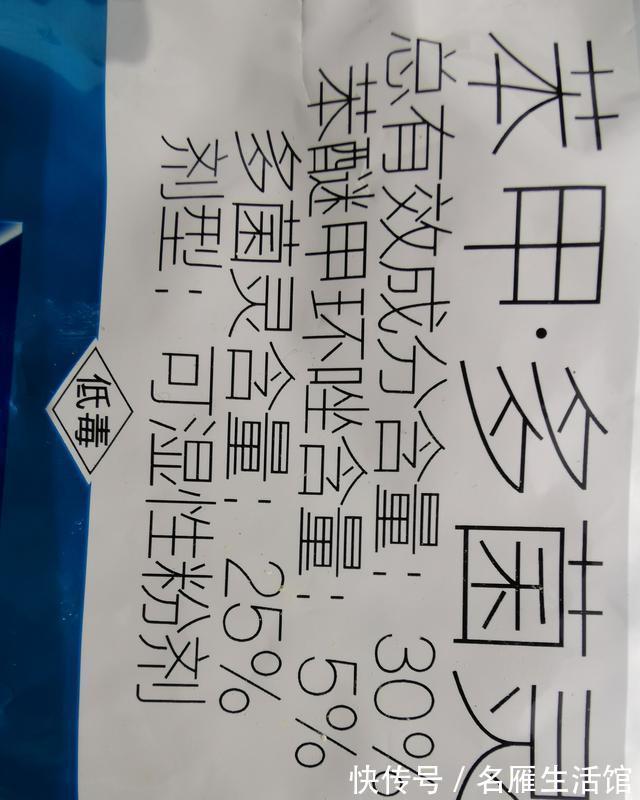 苯甲·多菌灵
总有效成分含量：30%
苯醚甲环唑含量：5%
多菌灵含量：25%
剂型：可湿性粉剂
低毒
快传号 / 名雁生活馆